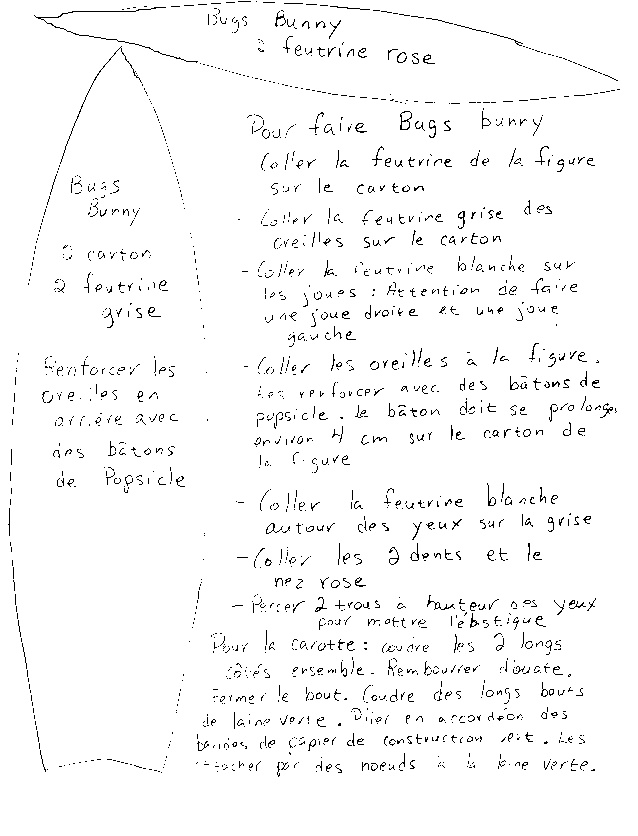 Bugs Bunny
2 feutrine rose
Bugs
Bunny
2 carton
2 feutrine
grise
Renforcer les
oreilles en
arrière avec
des bâtons
de Popsicle
Pour faire Bugs bunny
Coller la feutrine de la figure
sur le carton
- Coller la feutrine grise des
oreilles sur le carton
- Coller la feutrine blanche sur
les joues : Attention de faire
une joue droite et une joue
gauche
- Coller les oreilles à la figure.
Les renforcer avec des bâtons de
popsicle. le bâton doit se prolonger
environ 4 cm sur le carton de
la figure
- Coller la feutrine blanche
autour des yeux sur la grise
- Coller les 2 dents et le
nez rose
- Percer 2 trous à hauteur des yeux
pour mettre l'élastique
Pour la carotte : coudre les 2 longs
côtés ensemble. Rembourrer d'ouate.
Fermer le bout. Coudre des longs bouts
de laine verte. Plier en accordéon des
bandes de papier de construction vert. Les
attacher par des noeuds à la laine verte.